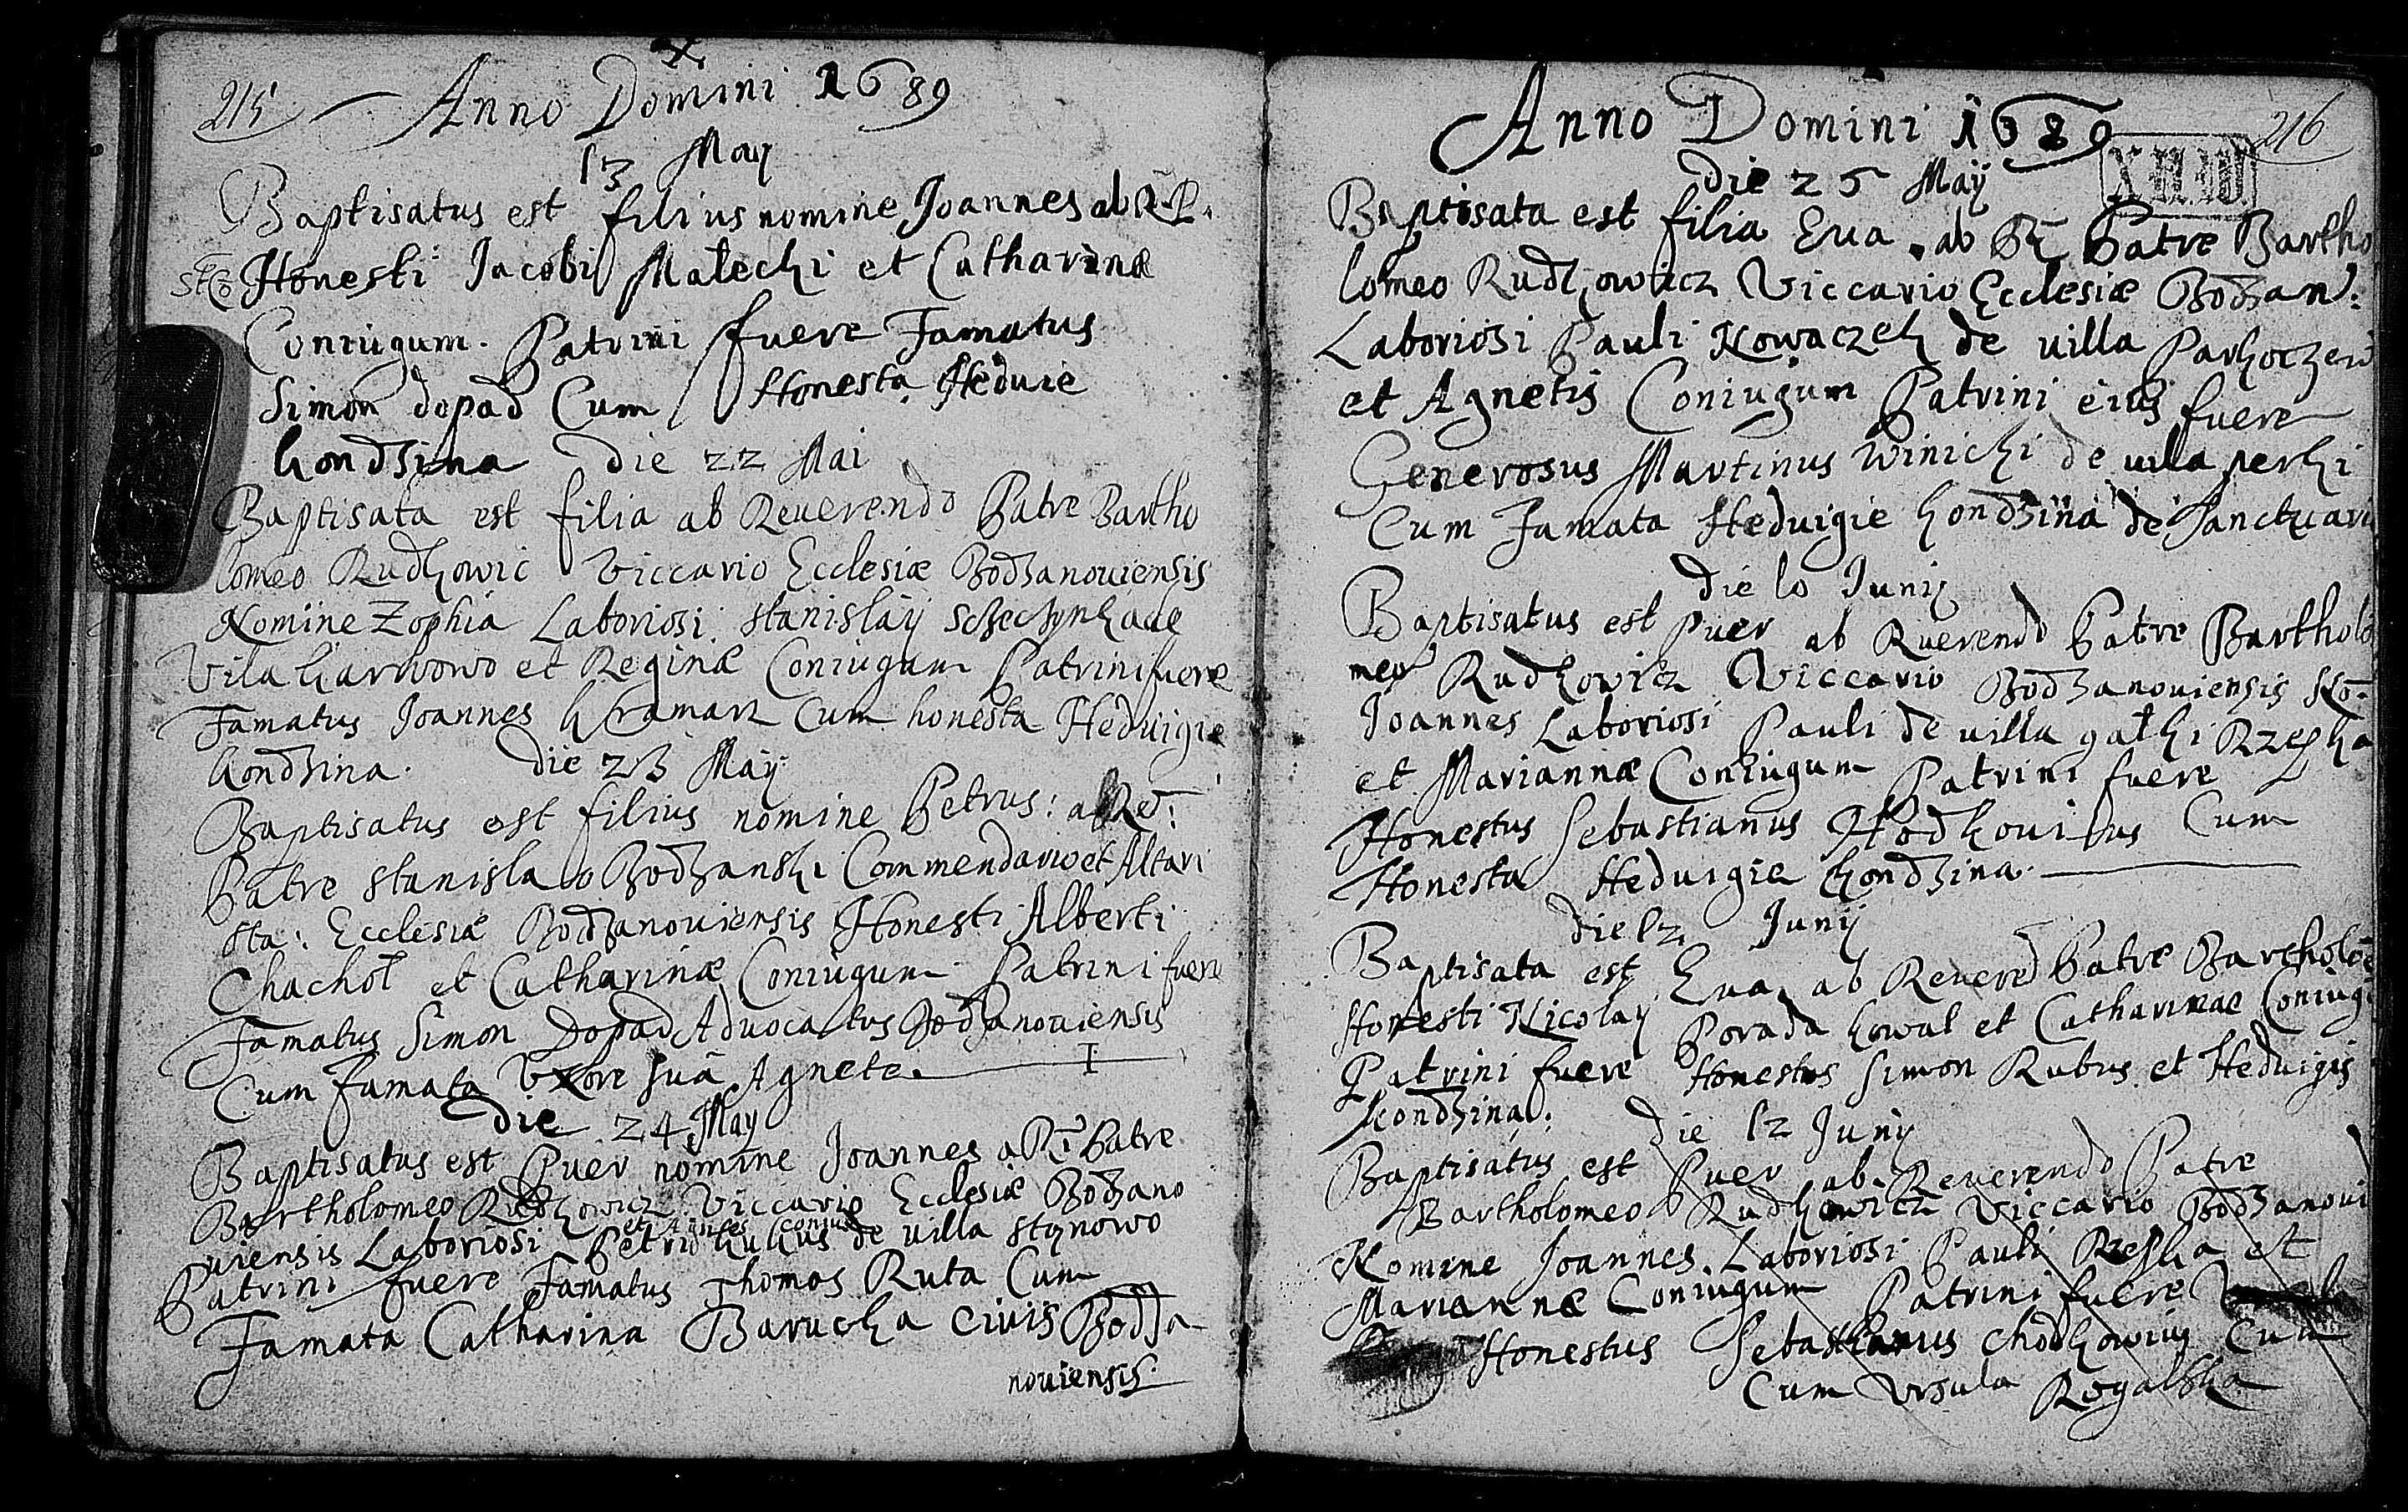 215
Anno Domini 1689
13 May
Baptisatus est filius nomine Joannes ab R. P.
Honesti Jacobi Malecki et Catharinæ
Coniugum. Patrini fuere Famatus
Simon dopad Cum Honesta Heduie
kondzina die 22 Mai
Baptisata est filia ab Reuerendo Patre Bartho
lomeo Rudkowic Viccario Ecclesiæ Bodzanouiensis
Nomine Zophia Laboriosi Stanislay de
Vila karwowo et Reginæ Coniugum Patrini fuere
Famatus Joannes kramarz Cum honesta Heduigie
kondzina. die 23 May
Baptisatus est filius nomine Petrus: ab Rd:
Patre Stanislao Bodzanski Commendario et Altari
sta: Ecclesiæ Bodzanouiensis Honesti Alberti
Chachoł et Catharinæ Coniugum Patrini fuere
Famatus Simon Dopad Aduocatus Bodzanouiensis
Cum famata Vxore suã Agnete.
die 24 May
Baptisatus est Puer nomine Joannes a Rd Patre
Bartholomeo Rudkowicz Viccario Ecclesiæ Bodzano
et Agnetes Coniug
uiensis Laboriosi Petri de villa stynowo
Patrini fuere Famatus Thomas Ruta Cum
Famata Catharina Barucka Ciuis Bodza
nouiensis.
216
Anno Domini 1689
die 25 Maÿ
Baptisata est filia Eua ab Rd Patre Bartho
lomeo Rudkowicz Viccario Ecclesiæ Bodzan:
Laboriosi Pauli Kowaczek de uilla Parkoczewo
et Agnetis Coniugum Patrini eius fuere
Generosus Martinus Winicki de uilla perki
Cum Famata Heduigie kondzina de Sanctuari
die 10 Junij
Baptisatus est puer ab Ruerendo Patre Bartholo
meo Rudkowicz Viccario Bodzanouiensis
Joannes Laboriosi Pauli de uilla gałki Rzepka
et Mariannæ Coniugum Patrini fuere
Honestus Sebastianus Hodkouitus Cum
Honesta Heduigie kondzina.
die 12 Junij
Baptisata est Eua ab Reuered Patre Bartholõe
Honesti Nicolay Porada kowal et Catharinae Coniug
Patrini fuere Honestus Simon Rubus et Heduigis
kondzina: die 12 Junij
Baptisatus est Puer ab Reuerendo Patre
Bartholomeo Rudkowicz Viccario Bodzanoui
Nomine Joannes Laboriosi Pauli Rzepka et
Mariannæ Coniugum Patrini fuere
Honestus Sebastianus Chodkowius Cum
Cum Vrsula Rogalska